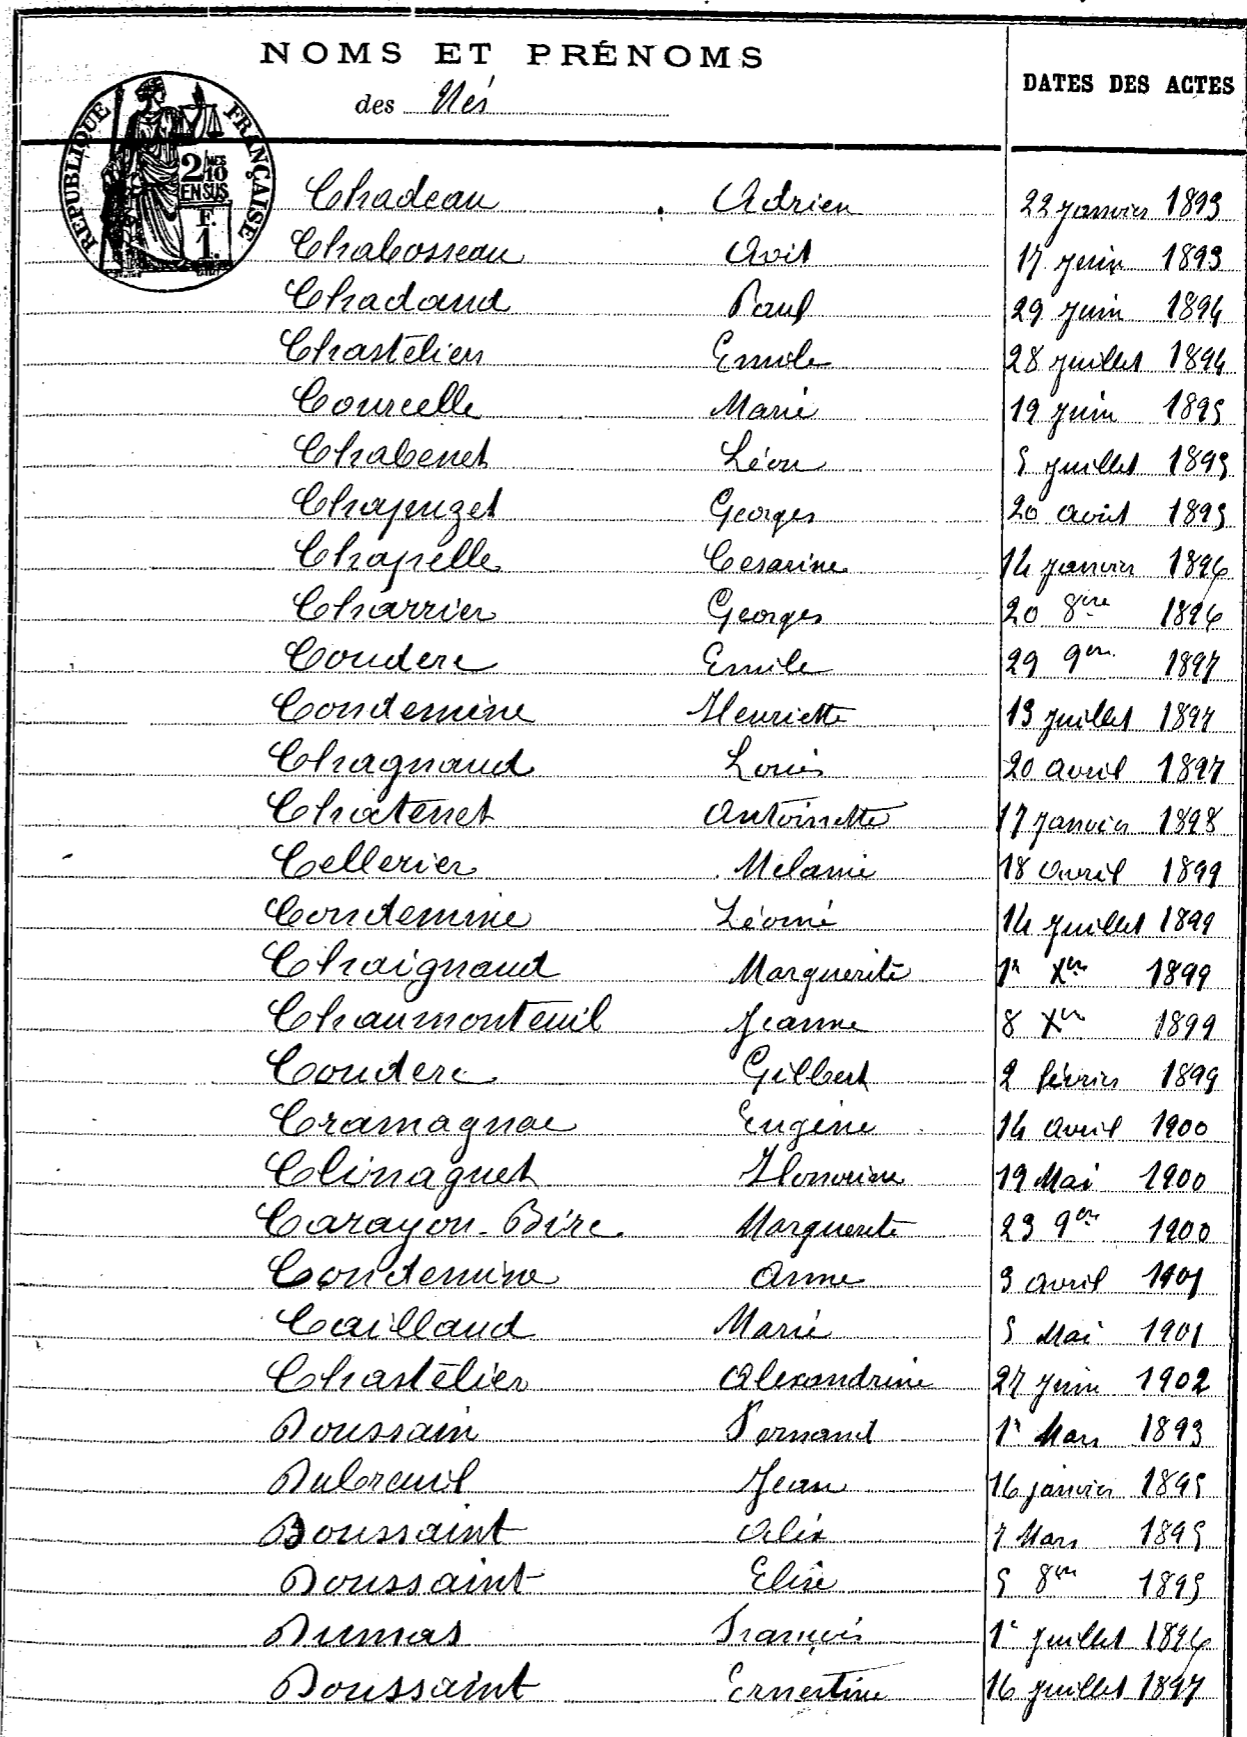 NOMS ET PRÉNOMS
des Nés
DATES DES ACTES
RÉPUBLIQUE FRANÇAISE
2/10 MES
EN SUS
F.
1.
Chadeau Adrien 22 janvier 1893
Chabosseau Avit 17 juin 1893
Chadaud Paul 29 juin 1894
Chastélier Emile 28 juillet 1894
Courcelle Marie 19 juin 1895
Chabenet Léon 5 juillet 1895
Chapuzet Georges 20 août 1895
Chapelle Cesarine 14 janvier 1896
Charrier Georges 20 8bre 1896
Couderc Emile 29 9bre 1897
Condemine Henriette 13 juillet 1897
Chagnaud Louis 20 avril 1897
Chatenet Antoinette 17 janvier 1898
Cellerier Mélanie 18 avril 1899
Condemine Léonie 14 juillet 1899
Chaignaud Marguerite 1er Xbre 1899
Chaumonteuil Jeanne 8 Xbre 1899
Couderc Gilbert 2 février 1899
Cramagnac Eugène 14 avril 1900
Clinaguet Honorine 19 Mai 1900
Carayon-Bire Marguerite 23 9bre 1900
Condemine Anne 3 avril 1901
Caillaud Marie 5 Mai 1901
Chastélier Alexandrine 27 juin 1902
Doussain Fernand 1er Mars 1893
Dubreuil Jean 16 janvier 1895
Doussaint Alix 7 Mars 1895
Doussaint Elise 5 8bre 1895
Dumas François 1er juillet 1896
Doussaint Ernestine 16 juillet 1897